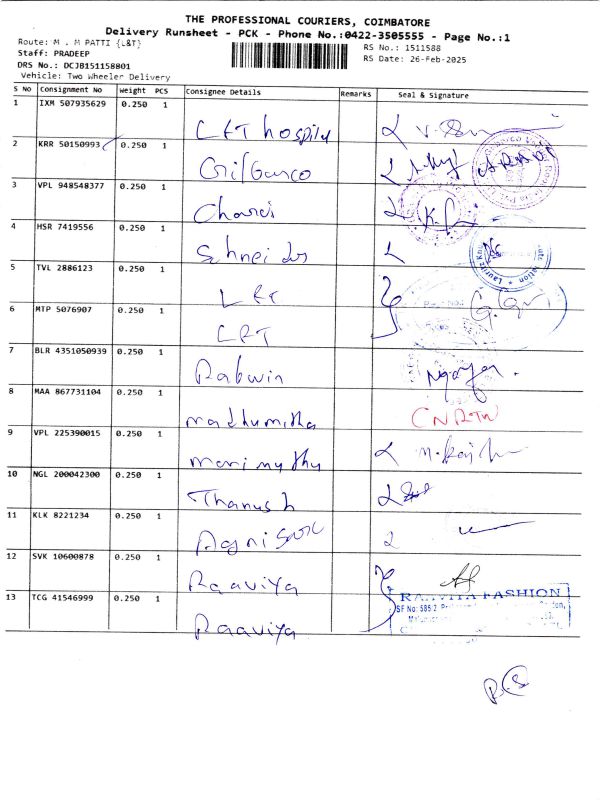 THE PROFESSIONAL COURIERS, COIMBATORE
Delivery Runsheet - PCK - Phone No.:0422-3505555 - Page No.:1
Route: M . M PATTI {L&T}
Staff: PRADEEP
DRS No.: DCJB151158801
Vehicle: Two Wheeler Delivery
RS No.: 1511588
RS Date: 26-Feb-2025
S No Consignment No Weight PCS Consignee Details Remarks Seal & Signature
1 IXM 507935629 0.250 1 L&T hospital
2 KRR 50150993 0.250 1
3 VPL 948548377 0.250 1
4 HSR 7419556 0.250 1 Schneider
5 TVL 2886123 0.250 1 L&T
6 MTP 5076907 0.250 1 L&T
7 BLR 4351050939 0.250 1 Rabwin
8 MAA 867731104 0.250 1 madhumitha
9 VPL 225390015 0.250 1 marimuthu
10 NGL 200042300 0.250 1 Thanush
11 KLK 8221234 0.250 1
12 SVK 10600878 0.250 1 Raaviya
13 TCG 41546999 0.250 1 Raaviya
RAAVIYA FASHION
SF No: 585/2